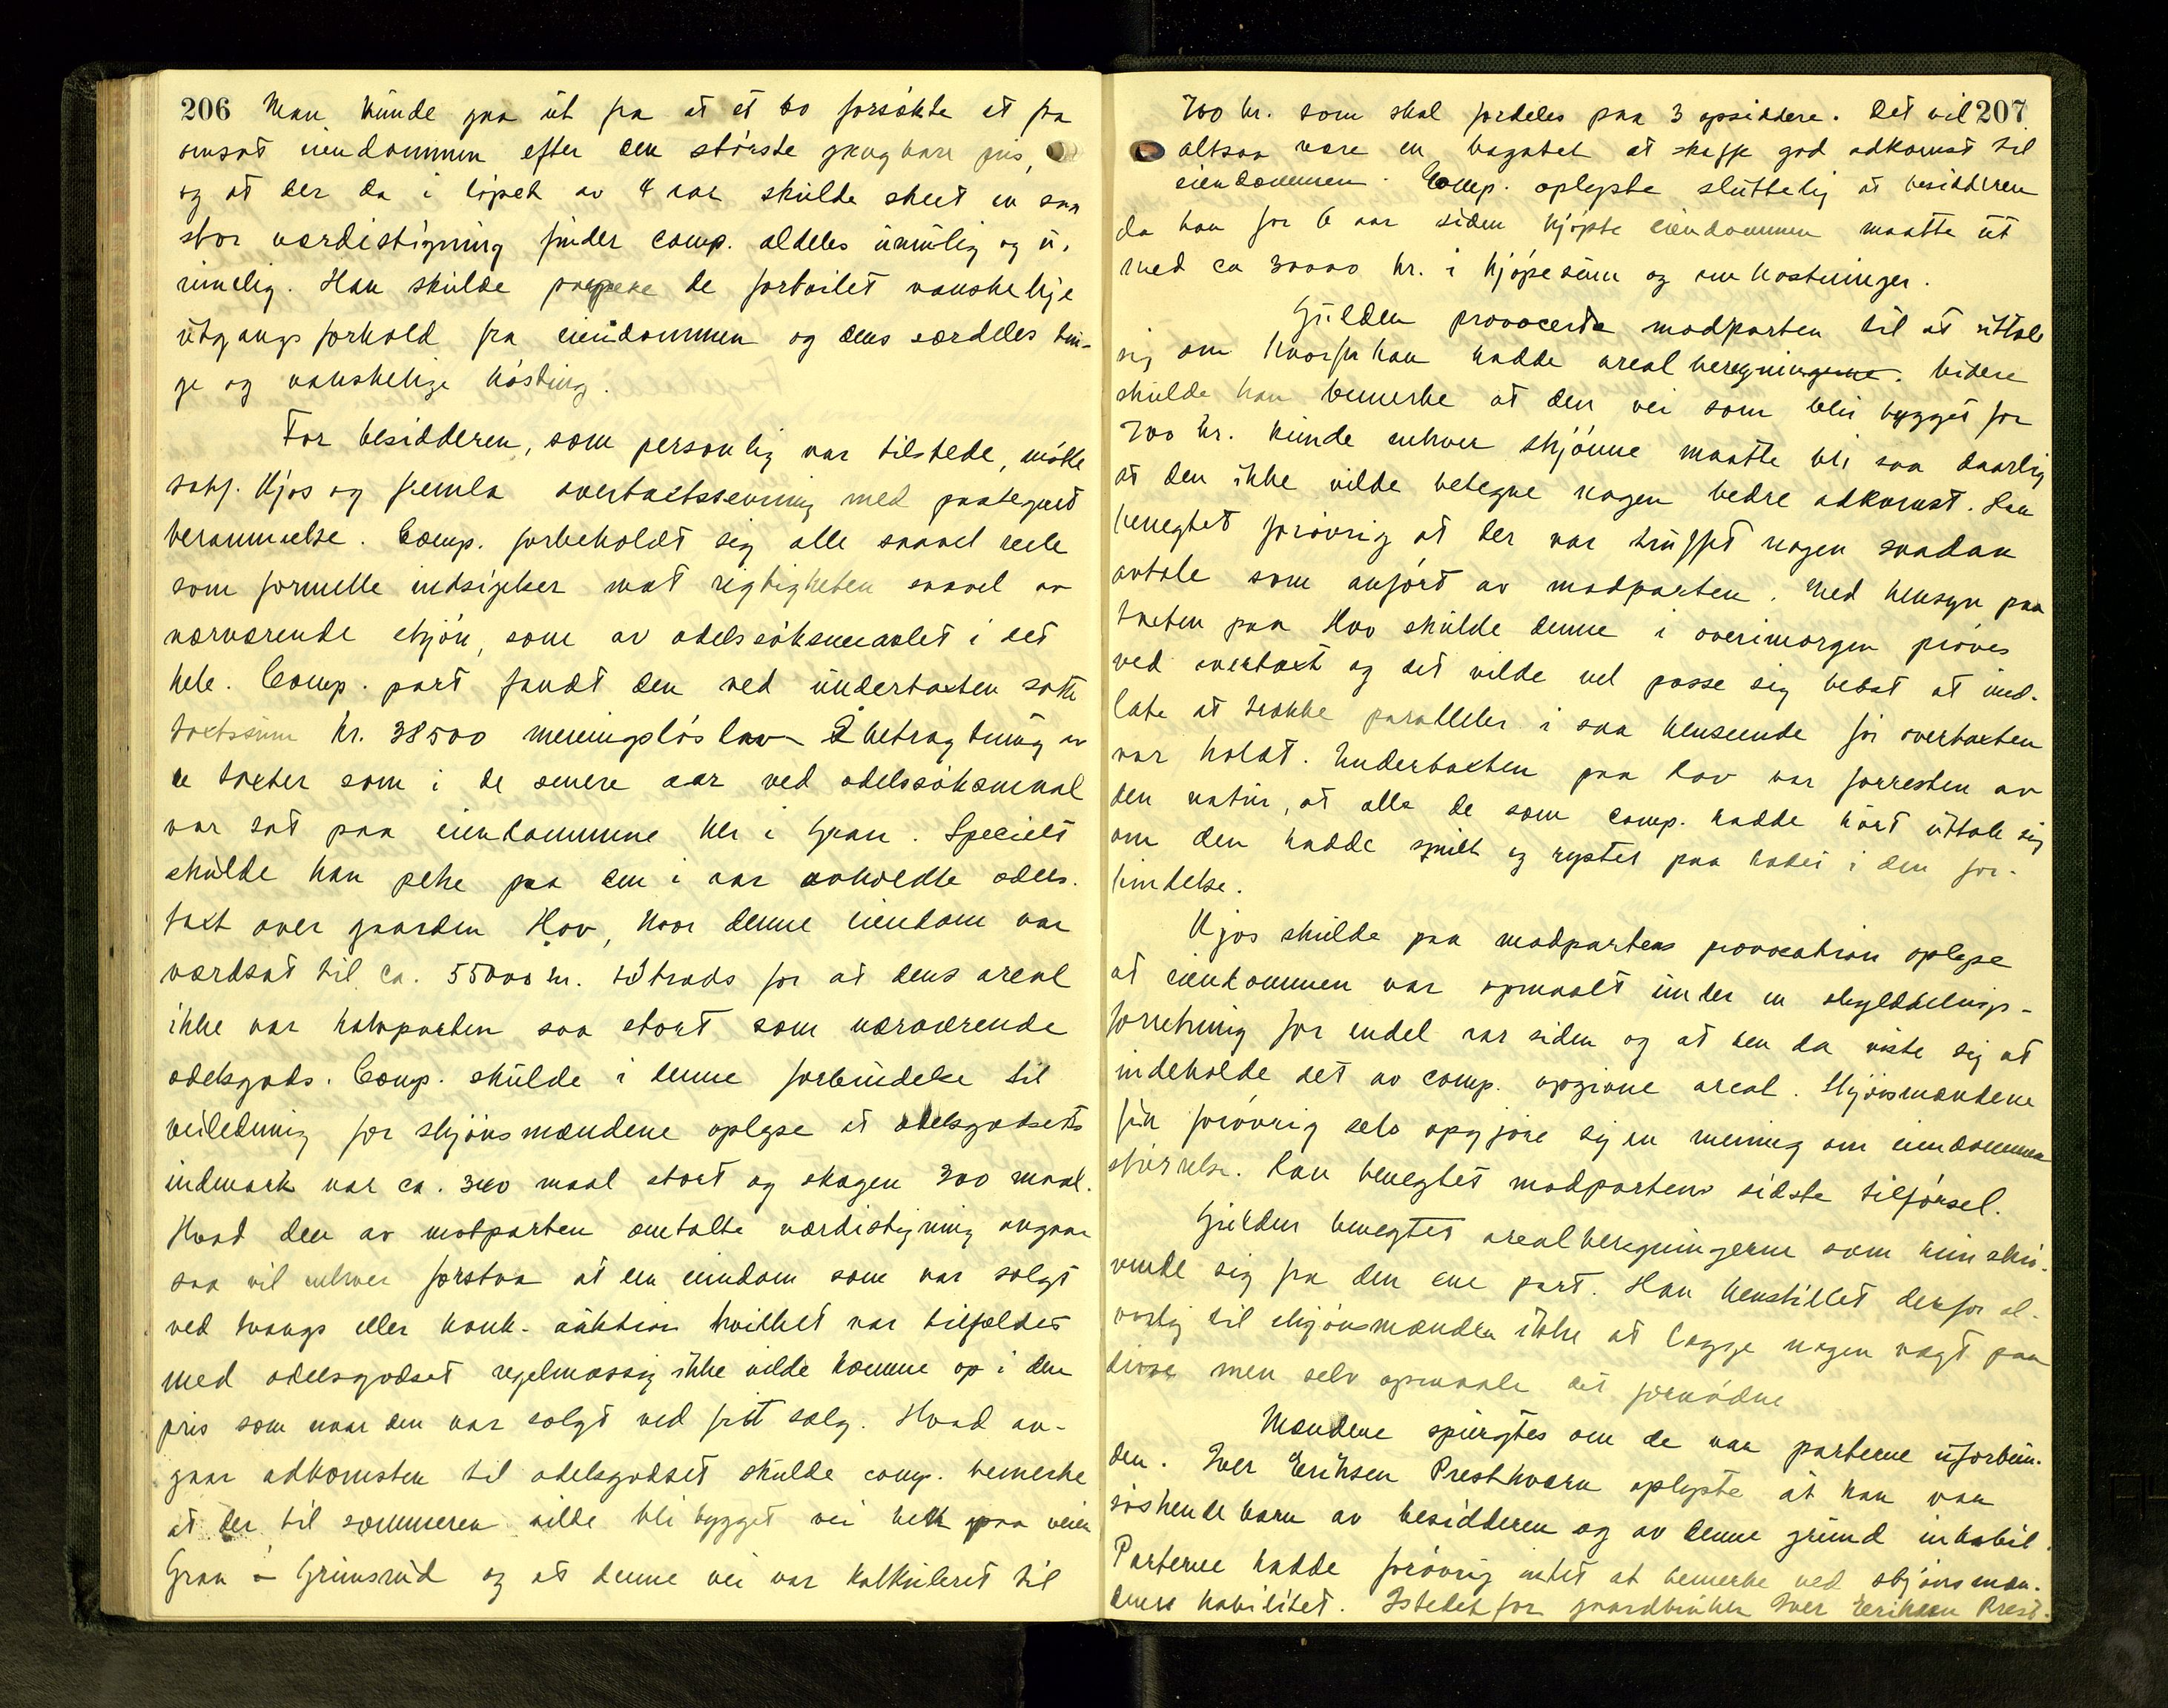 206 Man kunde gaa ut fra at et bo forsøkte at faa
omsat eiendommen efter den største gangbare pris,
og at der da i løpet av 4 aar skulde skeet en saa
stor værdistigning finder comp. aldeles umulig og u-
rimelig. Han skulde papeke de fortvilet vanskelige
utgangsforhold fra eiendommen og dens særdeles tun-
ge og vanskelige høsting.
For besidderen, som personlig var tilstede, møtte
sakf. Kjos og fremla overtakstsevning med paategnet
berammelse. Comp. forbeholdt sig alle saavel reele
som formelle indsigelser mot rigtigheten saavel av
nærværende skjøn, som av odelssøksmaalet i det
hele. Comp. part fandt den ved undertaxten satte
taxtsum kr. 38500 meningsløs lav i betragtning av
de taxter som i de senere aar ved odelssøksmaal
var sat paa eiendommene her i Gran. Specielt
skulde han peke paa den i aar avholdte odels-
taxt over gaarden Hov, hvor denne eiendom var
værdsat til ca. 55000 kr. til trods for at dens areal
ikke var halvparten saa stort som nærværende
odelsgods. Comp. skulde i denne forbindelse til
veiledning for skjønsmændene oplyse at odelsgodsets
indmark var ca. 340 maal stort og skogen 300 maal.
Hvad den av motparten omtalte værdistigning angaar
saa vil enhver forstaa at en eiendom som var solgt
ved tvangs eller konk. auktion hvilket var tilfældet
med odelsgodset regelmæssig ikke vilde komme op i den
pris som naar den var solgt ved fritt salg. Hvad an-
gaar adkomsten til odelsgodset skulde comp. bemerke
at der til sommeren vilde bli bygget vei helt paa veien
Gran - Grimsrud og at denne vei var kalkuleret til
700 kr. som skal fordeles paa 3 opsiddere. Det vil 207
altsaa være en bagatel at skaffe god adkomst til
eiendommen. Comp. oplyste sluttelig at besidderen
da han for 6 aar siden kjøpte eiendommen maatte ut
med ca 30000 kr. i kjøpesum og omkostninger.
Gulden provocerte modparten til at uttale
sig om hvorfra han hadde arealberegningerne. Videre
skulde han bemerke at den vei som blir bygget for
700 kr. kunde enhver skjønne maatte bli saa daarlig
at den ikke vilde betegne nogen bedre adkomst. Han
benegtet forøvrig at der var truffet nogen saadan
avtale som anført av modparten. Med hensyn paa
taxten paa Hov skulde denne i overimorgen prøves
ved overtaxt og det vilde vel passe sig bedst at und-
late at trække paralleler i saa henseende før overtaxten
var holdt. Undertaxten paa Hov var forresten av
den natur, at alle de som comp. hadde hørt uttale sig
om den hadde smilt og rystet paa hodet i den for-
bindelse.
Kjos skulde paa modpartens provocation oplyse
at eiendommen var opmaalt under en skylddelings-
forretning for endel aar siden og at den da viste sig at
indeholde det av comp. opgivne areal. Skjønsmændene
fik forøvrig selv opgjøre sig en mening om eiendommens
størrelse. Han benegtet modpartens sidste tilførsel.
Gulden benegtet arealberegningerne som kun skri-
vende sig fra den ene part. Han henstillet derfor al-
vorlig til skjønsmændene ikke at lægge nogen vægt paa
disse men selv opmaale det fornødne
Mændene spurgtes om de var parterne uforbun-
den. Iver Eriksen Prestkværn oplyste at han var
søskendebarn av besidderen og av denne grund inhabil.
Parterne hadde forøvrig intet at bemerke ved skjønsmæn-
denes habilitet. Istedetfor gaardbruker Iver Eriksen Prest-